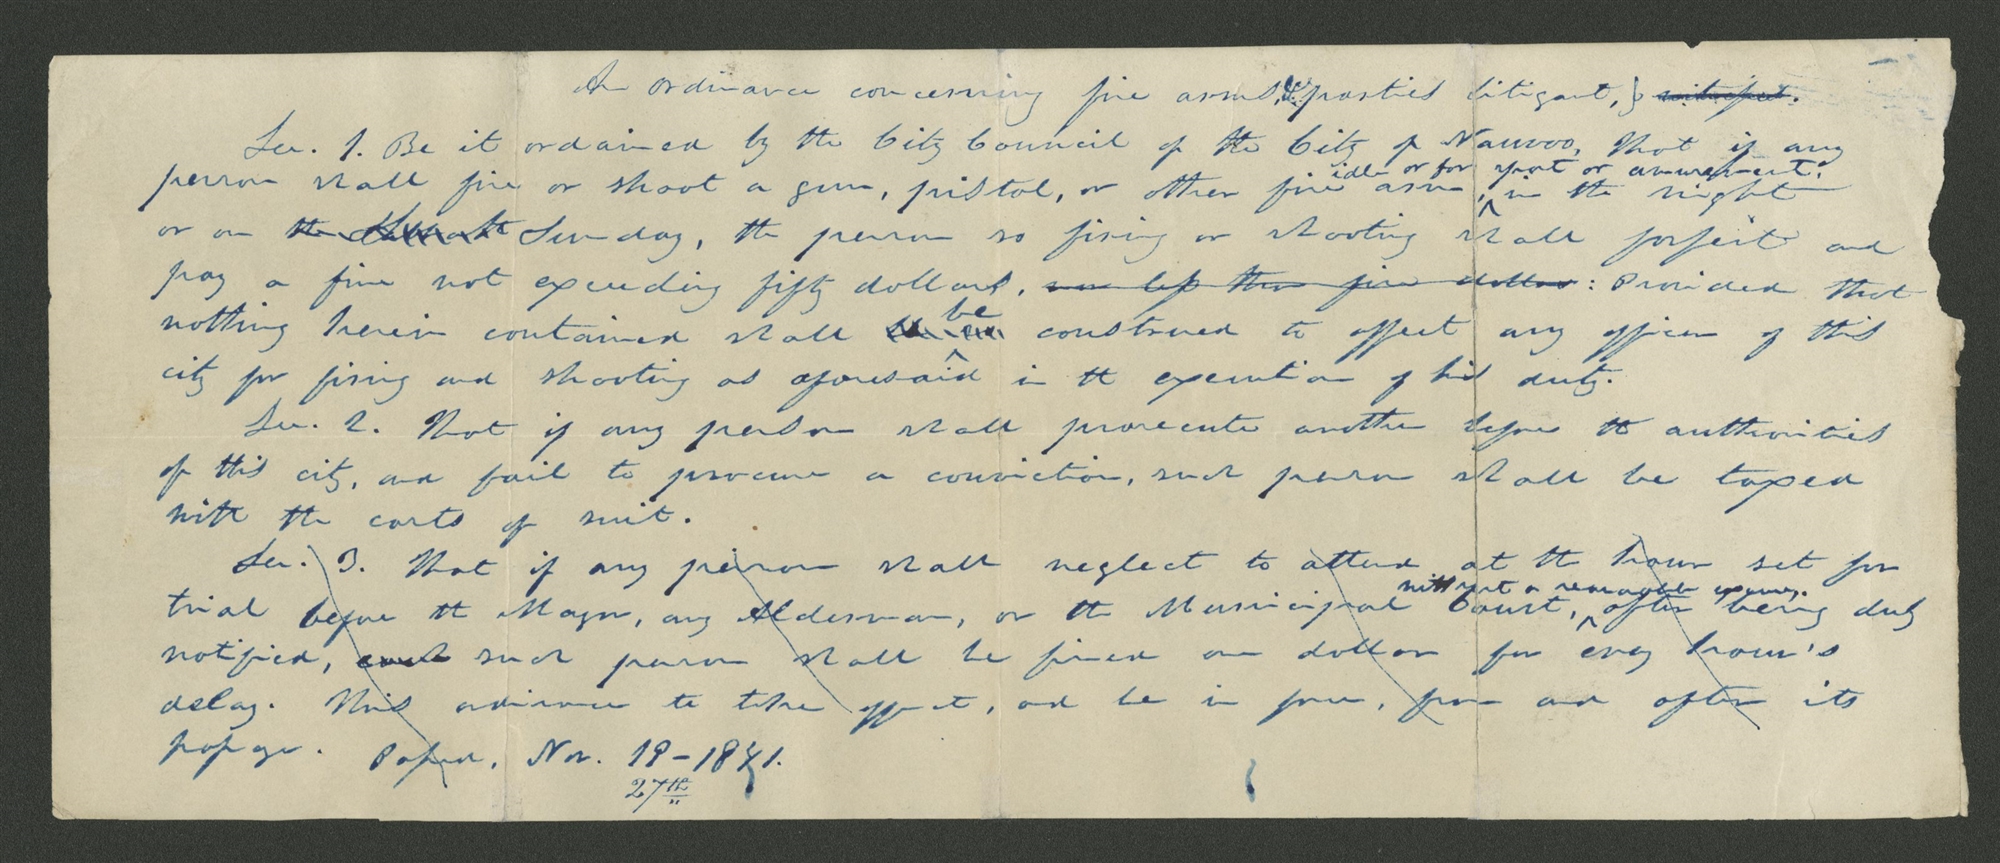 An ordinance concerning fire arms, & parties litigant, & witnesses.
Sec. 1. Be it ordained by the City Council of the City of Nauvoo, That if any
idle or for sport or amusement,
person shall fire or shoot a gun, pistol, or other fire arm, in the night
or on the Sabbath Sunday, the person so firing or shooting shall forfeit and
pay a fine not exceeding fifty dollars, nor less than five dollars: Provided that
be
nothing herein contained shall construed to affect any officer of this
city for firing and shooting as aforesaid in the execution of his duty.
Sec. 2. That if any person shall prosecute another before the authorities
of this city, and fail to procure a conviction, such person shall be taxed
with the costs of suit.
Sec. 3. That if any person shall neglect to attend at the hour set for
without a reasonable excuse,
trial before the Mayor, any Alderman, or the Municipal Court, after being duly
notified, such person shall be fined one dollar for every hour's
delay. This ordinance to take effect, and be in force, from and after its
passage. Passed, Nov. 19-1841.
27th